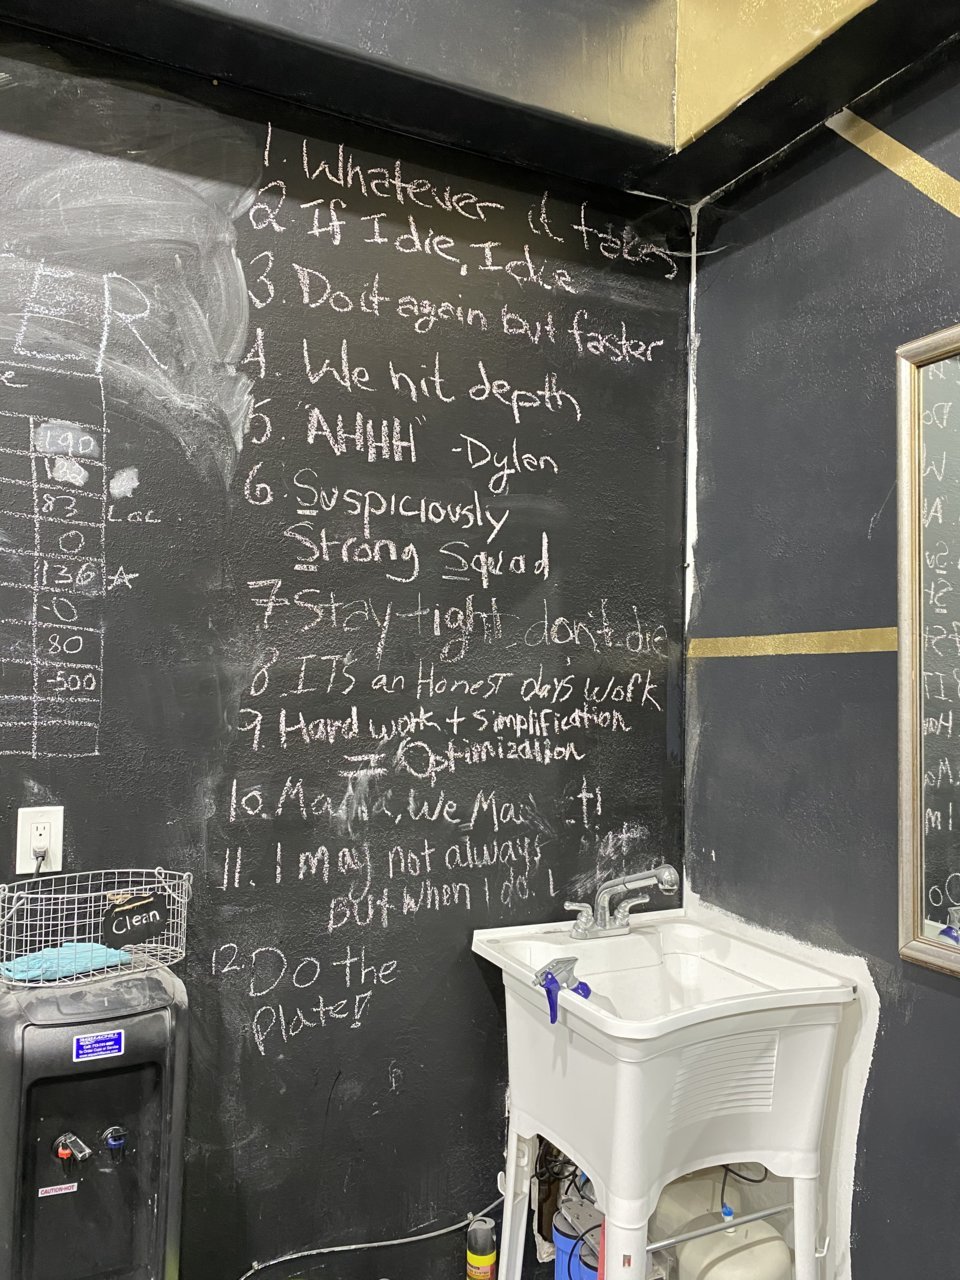 1. Whatever it takes
2. If I die, I die
3. Do it again but faster
4. We hit depth
5. "AHHH" -Dylan
6. Suspiciously
Strong Squad
7 Stay tight, don't die
8. IT'S an Honest days work
9. Hard work + simplification
= Optimization
10. Mama, We
11. I may not always
But when I do. I
12. Do the
Plate!
ER
190
83 Lol
0
136 A
-0
80
-500
Clean
CAUTION-HOT